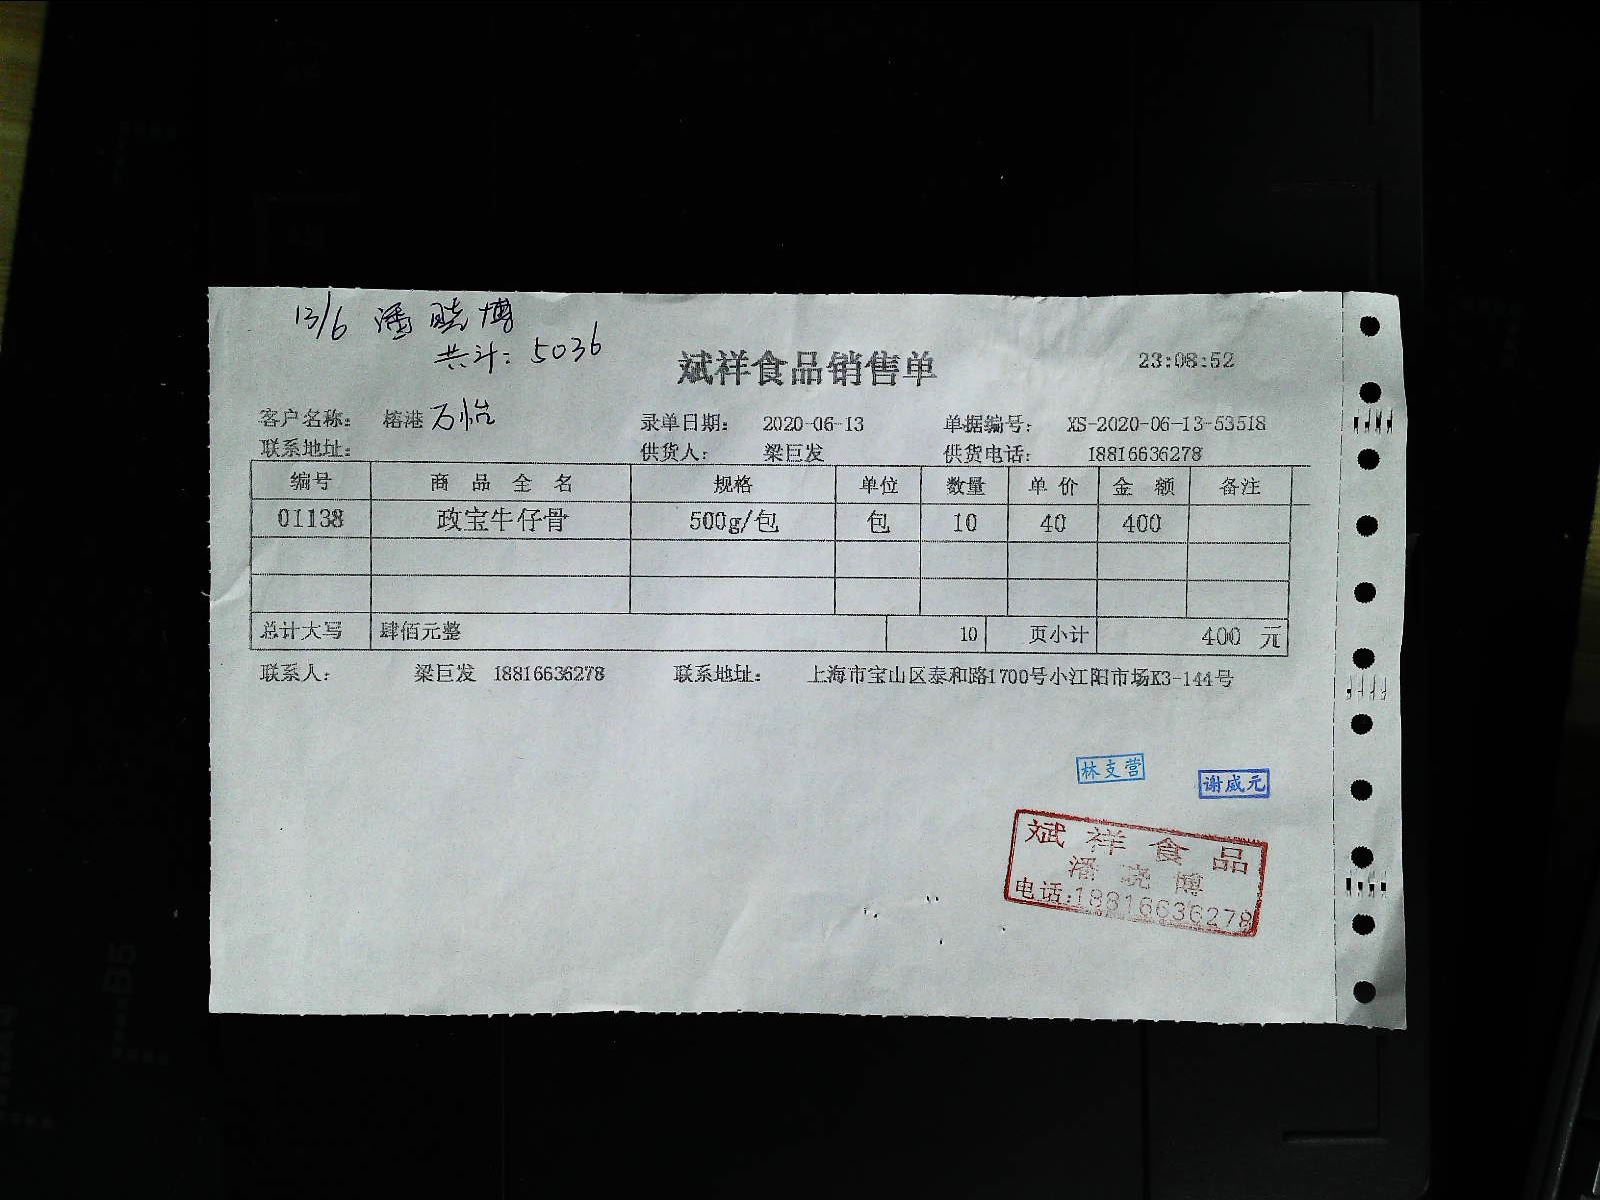 13/6 潘晓博
共计：5036
斌祥食品销售单 23:08:52
客户名称： 榕港万怡 录单日期： 2020-06-13 单据编号： XS-2020-06-13-53518
联系地址： 供货人： 梁巨发 供货电话： 18816636278
编号 商品全名 规格 单位 数量 单价 金额 备注
01138 政宝牛仔骨 500g/包 包 10 40 400
总计大写 肆佰元整 10 页小计 400 元
联系人： 梁巨发 18816636278 联系地址： 上海市宝山区泰和路1700号小江阳市场K3-144号
林支营
谢威元
斌祥食品
潘晓博
电话:18816636278